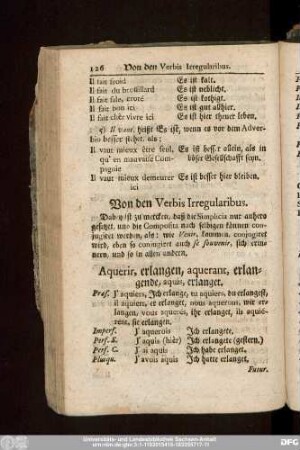 126 Von den Verbis Irregularibus.
Il fait froid Es ist kalt.
Il fait du brouillard Es ist neblicht.
Il fait sale, croté Es ist kothigt.
Il fait bon ici Es ist gut allhier.
Il fait chèr vivre ici Es ist hier theuer leben.
Il vaut, heißt Es ist, wenn es vor dem Adver-
bio besser stehet, als:
Il vaut mieux être seul, Es ist besser allein, als in
qu' en mauvaise Com- böser Gesellschafft seyn.
pagnie
Il vaut mieux demeurer Es ist besser hier bleiben.
ici
Von den Verbis Irregularibus.
Dabey ist zu mercken, daß die Simplicia nur anhero
gesetzt, und die Composita nach selbigen können con-
jugiret werden, als: wie Venir, kommen, conjugiret
wird, eben so conjugirt auch se souvenir, sich erin-
nern, und so in allen andern.
Aquerir, erlangen, aquerant, erlan-
gende, aquis, erlanget.
Præs. J'aquiers, Ich erlange, tu aquiers, du erlangest,
il aquiert, er erlanget, nous aquerons, wir er-
langen, vous aquerés, ihr erlanget, ils aquié-
rent, sie erlangen.
Imperf. J'aquerois Ich erlangete.
Perf. S. J'aquis (hièr) Ich erlangete (gestern.)
Perf. C. J'ai aquis Ich habe erlanget.
Plusq. J'avois aquis Ich hatte erlanget.
Futur.
Universitäts- und Landesbibliothek Sachsen-Anhalt